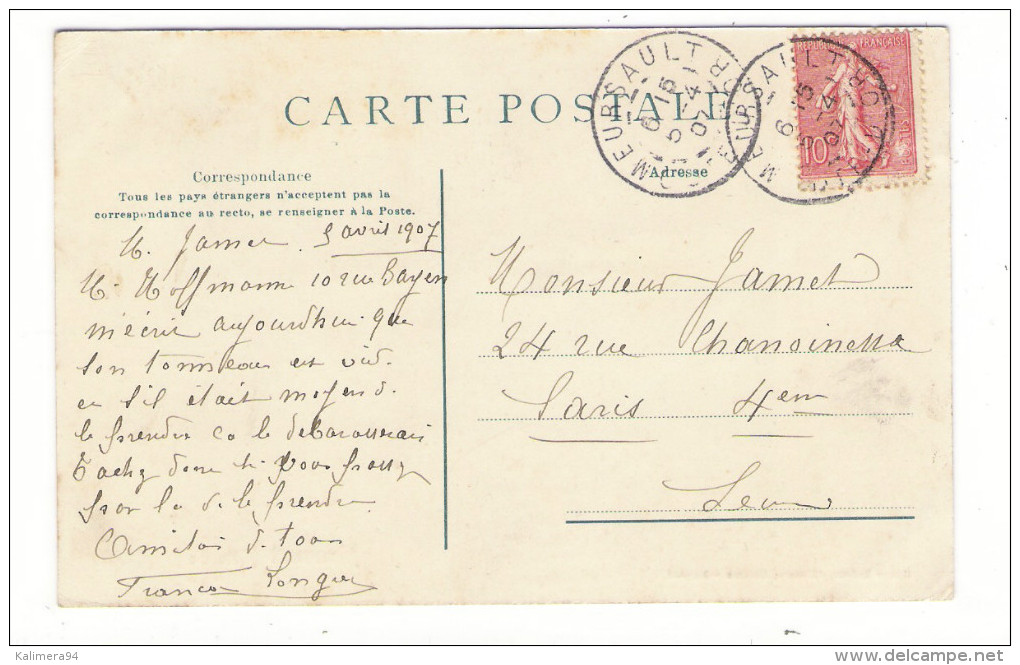 CARTE POSTALE
MEURSAULT
6 15
5 -4
07
MEURSAULT
CÔTE-D'OR
6 15
5 -4
07
REPUBLIQUE FRANÇAISE
10
POSTES
Correspondance
Tous les pays étrangers n'acceptent pas la
correspondance au recto, se renseigner à la Poste.
Adresse
M. Jamet 5 avril 1907
M. Hoffmann 10 rue Bayen
m'écrit aujourd'hui que
son tonneau est vid
et s'il était moyen d.
le prendre ca le debarasserais
Tachez donc si vous passez
par la de le prendre
Amities d. tous
Longue
Monsieur Jamet
24 rue Chanoinesse
Paris 4em
Kalimera94
delcampe.net